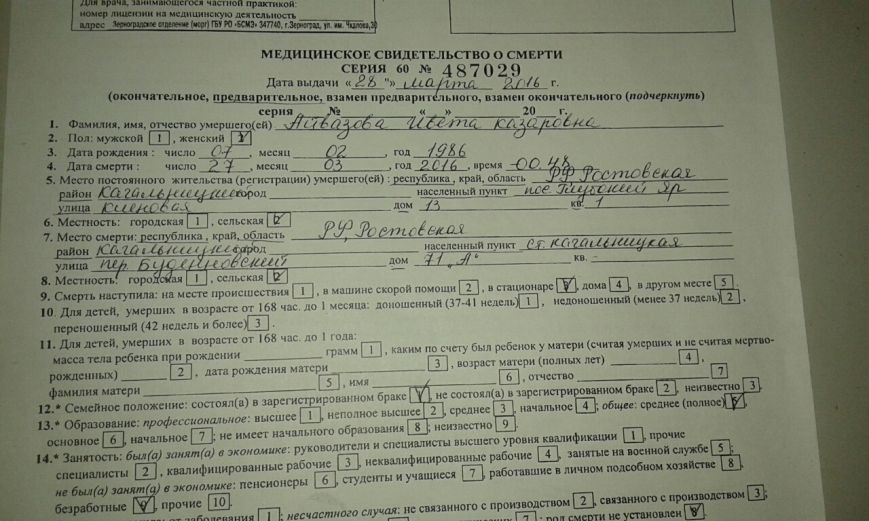 Для врача, занимающегося частной практикой:
номер лицензии на медицинскую деятельность
адрес Зерноградское отделение (морг) ГБУ РО «БСМЭ» 347740, г.Зерноград, ул. им. Чкалова,30
МЕДИЦИНСКОЕ СВИДЕТЕЛЬСТВО О СМЕРТИ
СЕРИЯ 60 № 487029
Дата выдачи «28» марта 2016 г.
(окончательное, предварительное, взамен предварительного, взамен окончательного (подчеркнуть)
серия № « » 20 г.
1. Фамилия, имя, отчество умершего(ей) Айвазова Ивета Казаровна
2. Пол: мужской 1 , женский 2
3. Дата рождения : число 07, месяц 02, год 1986
4. Дата смерти : число 27, месяц 03, год 2016, время -00.48
5. Место постоянного жительства (регистрации) умершего(ей) : республика , край, область РФ Ростовская
район Кагальницкий город населенный пункт пос Глубокий Яр
улица Кленовая дом 13 кв. 1
6. Местность: городская 1 , сельская 2
7. Место смерти: республика , край, область РФ, Ростовская
район Кагальницкий город населенный пункт ст. Кагальницкая
улица пер. Буденновский дом 71 „А" кв. -
8. Местность: городская 1 , сельская 2
9. Смерть наступила: на месте происшествия 1 , в машине скорой помощи 2 , в стационаре 3 , дома 4 , в другом месте 5 .
10. Для детей, умерших в возрасте от 168 час. до 1 месяца: доношенный (37-41 недель) 1 , недоношенный (менее 37 недель) 2 ,
переношенный (42 недель и более) 3 .
11. Для детей, умерших в возрасте от 168 час. до 1 года:
масса тела ребенка при рождении грамм 1 , каким по счету был ребенок у матери (считая умерших и не считая мертво-
рожденных) 2 , дата рождения матери 3 , возраст матери (полных лет) 4 ,
фамилия матери 5 , имя 6 , отчество 7
12.* Семейное положение: состоял(а) в зарегистрированном браке 1 , не состоял(а) в зарегистрированном браке 2 , неизвестно 3 .
13.* Образование: профессиональное: высшее 1 , неполное высшее 2 , среднее 3 , начальное 4 ; общее: среднее (полное) 5 ,
основное 6 , начальное 7 ; не имеет начального образования 8 ; неизвестно 9 .
14.* Занятость: был(а) занят(а) в экономике: руководители и специалисты высшего уровня квалификации 1 , прочие
специалисты 2 , квалифицированные рабочие 3 , неквалифицированные рабочие 4 , занятые на военной службе 5 ;
не был(а) занят(а) в экономике: пенсионеры 6 , студенты и учащиеся 7 , работавшие в личном подсобном хозяйстве 8 ,
безработные 9 , прочие 10 .
от заболевания 1 ; несчастного случая: не связанного с производством 2 , связанного с производством 3 ;
7 ; род смерти не установлен 8 .